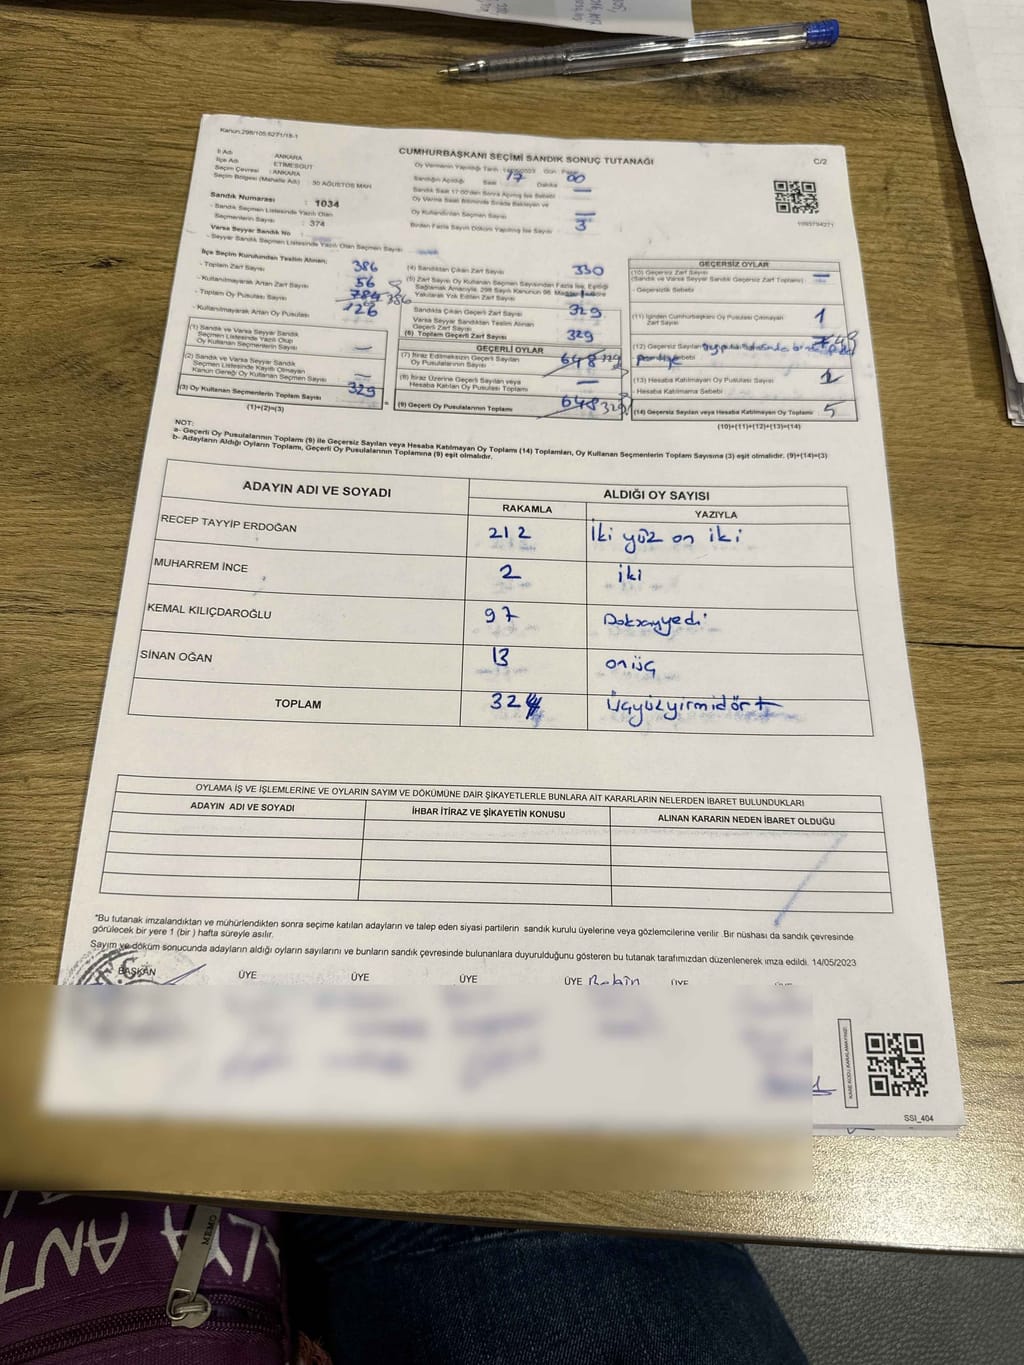 Kanun:298/105;6271/18-1
CUMHURBAŞKANI SEÇİMİ SANDIK SONUÇ TUTANAĞI
C/2
İl Adı : ANKARA
İlçe Adı : ETİMESGUT
Seçim Çevresi : ANKARA
Seçim Bölgesi (Mahalle Adı) : 30 AĞUSTOS MAH
Sandık Numarası : 1034
- Sandık Seçmen Listesinde Yazılı Olan
Seçmenlerin Sayısı : 374
Varsa Seyyar Sandık No
- Seyyar Sandık Seçmen Listesinde Yazılı Olan Seçmen Sayısı
Oy Vermenin Yapıldığı Tarih
Sandığın Açıldığı Saat 17 Dakika 00
Sandık Saat 17:00'den Sonra Açılmış İse Sebebi
Oy Verme Saati Bitiminde Sırada Bekleyen ve
Oy Kullandırılan Seçmen Sayısı
Birden Fazla Sayım Döküm Yapılmış İse Sayısı 3
İlçe Seçim Kurulundan Teslim Alınan;
- Toplam Zarf Sayısı 386
- Kullanılmayarak Artan Zarf Sayısı 56
- Toplam Oy Pusulası Sayısı 784 386
- Kullanılmayarak Artan Oy Pusulası 126
(1) Sandık ve Varsa Seyyar Sandık
Seçmen Listesinde Yazılı Olup
Oy Kullanan Seçmenlerin Sayısı
(2) Sandık ve Varsa Seyyar Sandık
Seçmen Listesinde Kayıtlı Olmayan
Kanun Gereği Oy Kullanan Seçmen Sayısı
(3) Oy Kullanan Seçmenlerin Toplam Sayısı 329
(1)+(2)=(3)
(4) Sandıktan Çıkan Zarf Sayısı 330
(5) Zarf Sayısı Oy Kullanan Seçmen Sayısından Fazla İse, Eşitliği
Sağlamak Amacıyla, 298 Sayılı Kanunun 98. Maddesi Göre
Yakılarak Yok Edilen Zarf Sayısı 1
Sandıkta Çıkan Geçerli Zarf Sayısı 329
Varsa Seyyar Sandıktan Teslim Alınan
Geçerli Zarf Sayısı
(6) Toplam Geçerli Zarf Sayısı 329
GEÇERLİ OYLAR
(7) İtiraz Edilmeksizin Geçerli Sayılan
Oy Pusulalarının Sayısı 648 329
(8) İtiraz Üzerine Geçerli Sayılan veya
Hesaba Katılan Oy Pusulası Toplamı
(9) Geçerli Oy Pusulalarının Toplamı 648 329
GEÇERSİZ OYLAR
(10) Geçersiz Zarf Sayısı
(Sandık ve Varsa Seyyar Sandık Geçersiz Zarf Toplamı)
- Geçersizlik Sebebi
(11) İçinden Cumhurbaşkanı Oy Pusulası Çıkmayan
Zarf Sayısı 1
(12) Geçersiz Sayılan
(13) Hesaba Katılmayan Oy Pusulası Sayısı
- Hesaba Katılmama Sebebi
(14) Geçersiz Sayılan veya Hesaba Katılmayan Oy Toplamı 5
(10)+(11)+(12)+(13)=(14)
NOT:
a- Geçerli Oy Pusulalarının Toplamı (9) ile Geçersiz Sayılan veya Hesaba Katılmayan Oy Toplamı (14) Toplamları, Oy Kullanan Seçmenlerin Toplam Sayısına (3) eşit olmalıdır. (9)+(14)=(3)
b- Adayların Aldığı Oyların Toplamı, Geçerli Oy Pusulalarının Toplamına (9) eşit olmalıdır.
ADAYIN ADI VE SOYADI
ALDIĞI OY SAYISI
RAKAMLA YAZIYLA
RECEP TAYYİP ERDOĞAN 212 İki yüz on iki
MUHARREM İNCE 2 iki
KEMAL KILIÇDAROĞLU 97 Doksanyedi
SİNAN OĞAN 13 onüç
TOPLAM 324 Üçyüzyirmidört
OYLAMA İŞ VE İŞLEMLERİNE VE OYLARIN SAYIM VE DÖKÜMÜNE DAİR ŞİKAYETLERLE BUNLARA AİT KARARLARIN NELERDEN İBARET BULUNDUKLARI
ADAYIN ADI VE SOYADI İHBAR İTİRAZ VE ŞİKAYETİN KONUSU ALINAN KARARIN NEDEN İBARET OLDUĞU
*Bu tutanak imzalandıktan ve mühürlendikten sonra seçime katılan adayların ve talep eden siyasi partilerin sandık kurulu üyelerine veya gözlemcilerine verilir .Bir nüshası da sandık çevresinde
görülecek bir yere 1 (bir ) hafta süreyle asılır.
Sayım ve döküm sonucunda adayların aldığı oyların sayılarını ve bunların sandık çevresinde bulunanlara duyurulduğunu gösteren bu tutanak tarafımızdan düzenlenerek imza edildi. 14/05/2023
BAŞKAN ÜYE ÜYE ÜYE ÜYE ÜYE
SSI_404